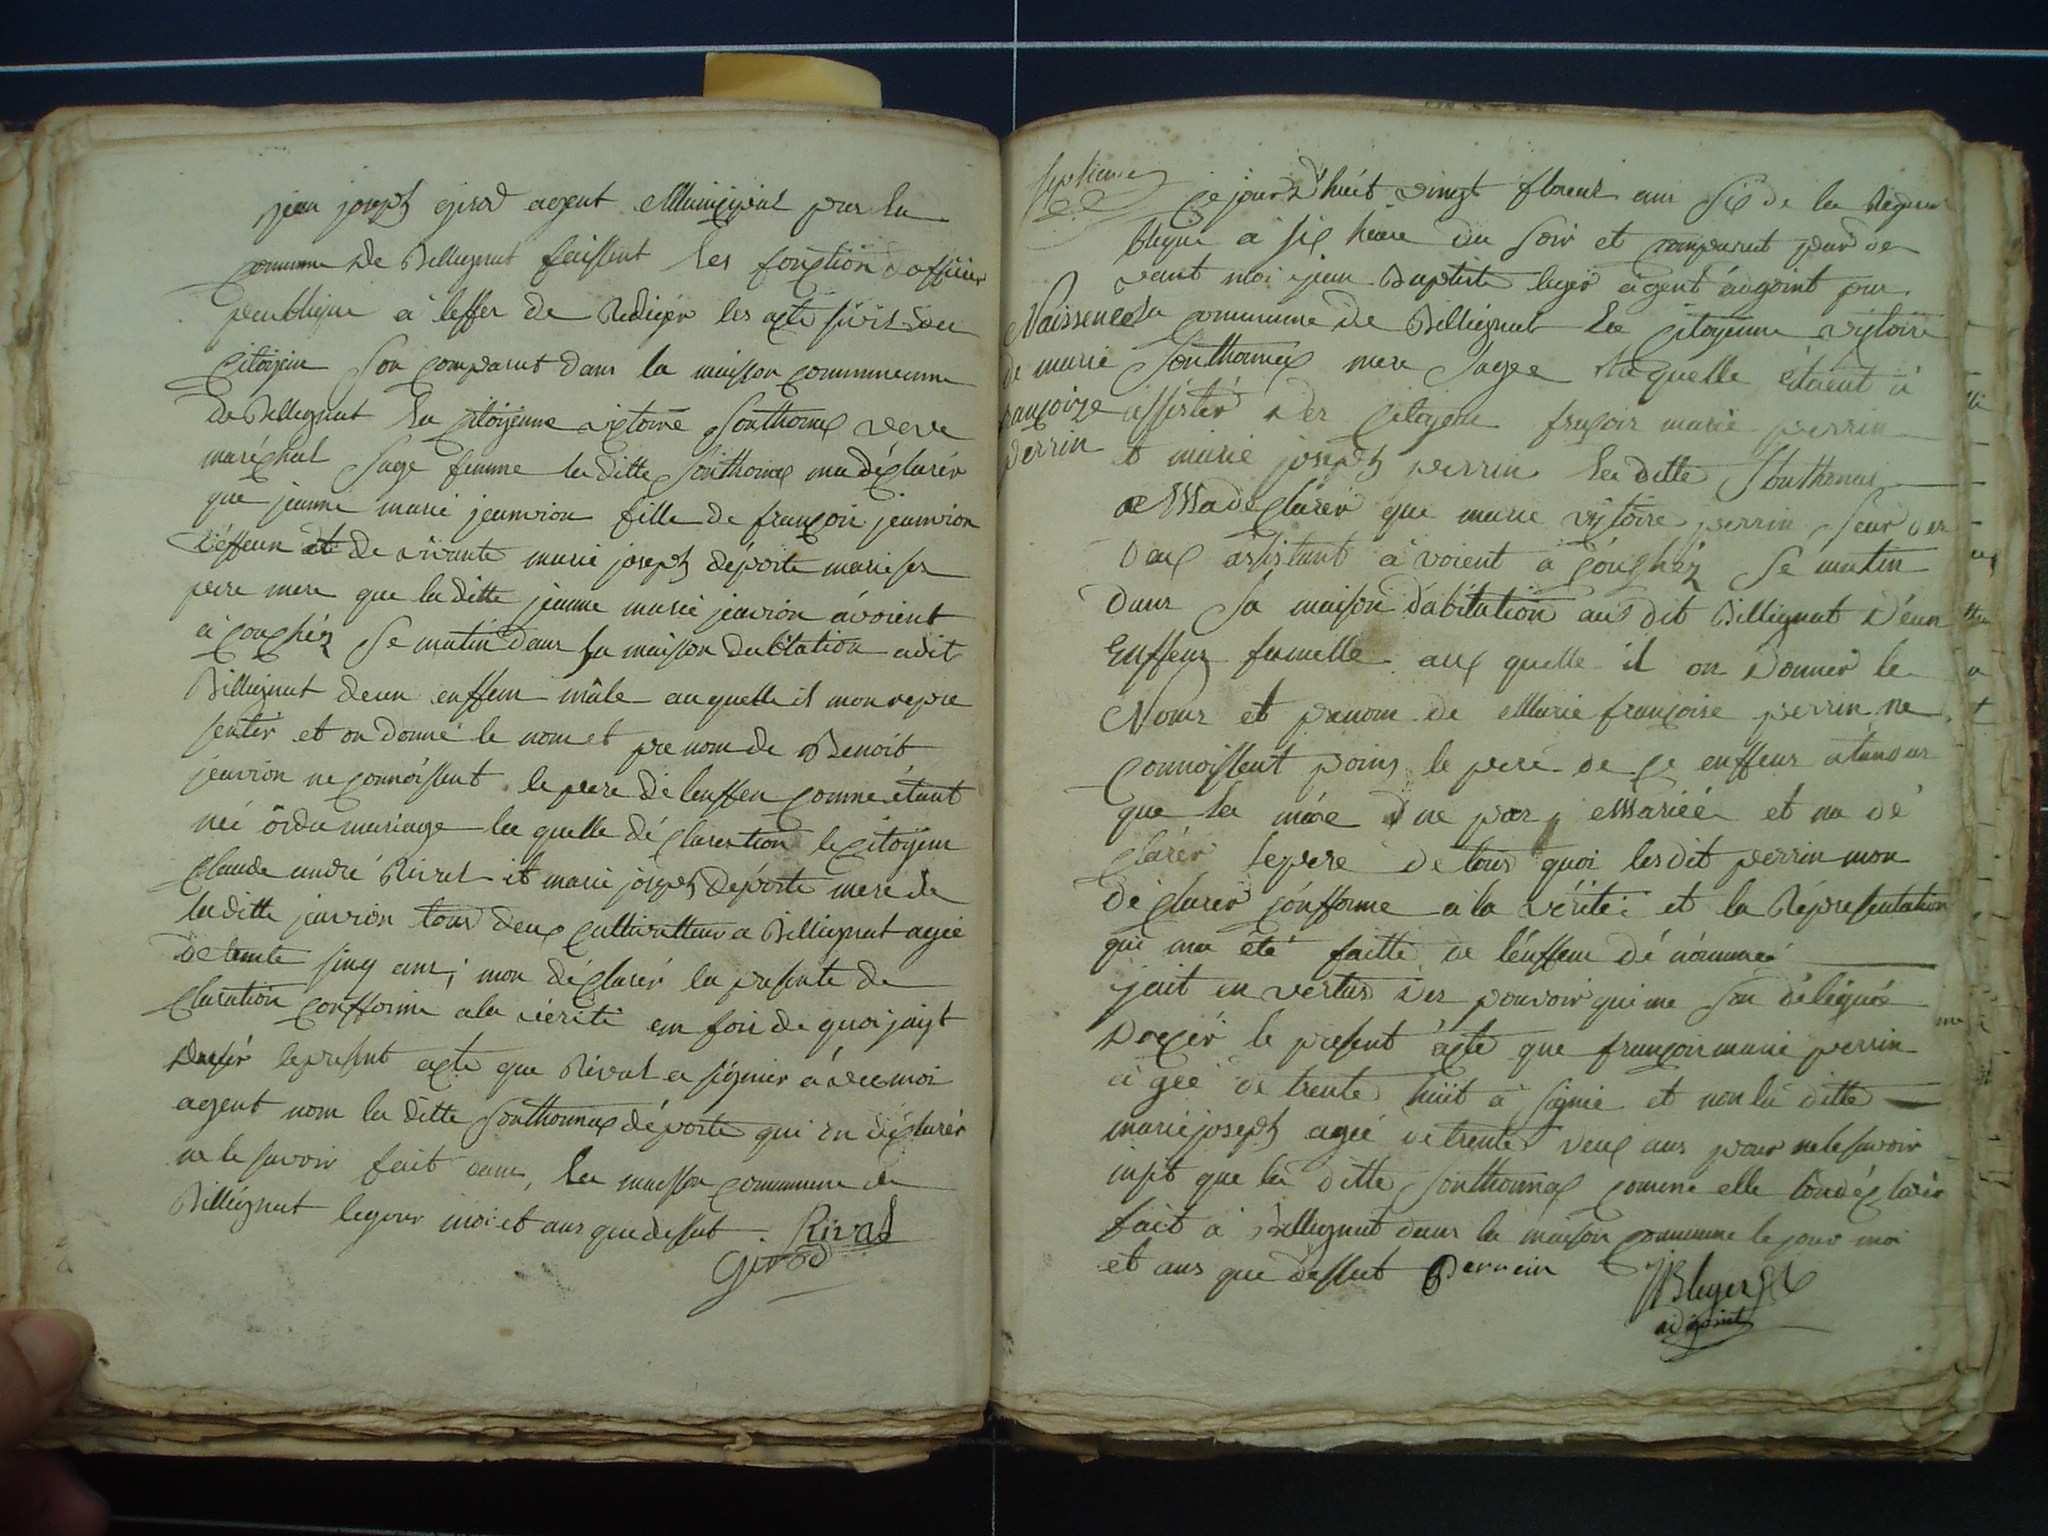 jean joseph girod agent Municipal pour la
commune de Billiegnat faissent les fonction d'officier
peublique a leffer de Rediger les acte sivil des
citoyen son comparut dans la maison communne
de Billiegnat la citoyenne victoire Sonthonax veve
maréchal sage femme la ditte Sonthonax ma déclarér
que jeanne marie jeanvion fille de françois jeanvion
déffeun et de vivante marie joseph déporte marie ses
pere mere que la ditte jeanne marie jeavion avoient
a couchéz se matin dans sa maison dabitation audit
Billiegnat deun enffen mâle auquelle il mon repre
senter et on donné le nom et prenom de Benoit
jeavion ne connoissent le pere de lenffen comme étant
néé ordu mariage la quelle déclaration le citoyen
claude andré Rival et marie joseph déporte mere de
la ditte jeavion tous deux cultivatteur a Billiegnat agéé
de trente sinq ans; mon déclarér la presente de
claration confforme a la vérité em foii de quoi jayt
dresér le present acte que Rival a signier avec moi
agent nom la ditte Sonthonnax déporte qui on déclarér
ne le savoir fait dans la maisson commune de
Billiegnat le jour moi et ans que dessut Rival
Girod
septieme
Ce jourd'huit vingt floreal ans six de la Repeu
blique a six heure du soir et comparut pard de
vant moi jean Baptiste leger agent adgoint pour
Naissence la commune de Billiegnat la citoyenne victoire
de marie Sonthonnax mere sagee laquelle étaent a
françoize assister des citoyen françois marie perrin
perrin et marie joseph perrin la ditte Sonthonax
Ma declarér que marie victoire perrin seur des
deux assistant avoient a couchéz se matin
dans sa maison dabitation aus dit Billiegnat deun
Enffens femelle aux quelle il on donner le
Noms et prenom de Marie françoise perrin ne
connoissent poins le pere de ce enffens atandus
que la mére ne pas Mariéé et na dé
clarér le pere de tous quoi les dit perrin mon
déclarer confforme a la vérité et la Répresentation
qui ma été faitte de l'enffens dé nommeé
jait en vertus des pouvoir qui me son délégués
drecér le present acte que françois marie perrin
agéé de trente huit a signie et non la ditte
marie joseph agéé de trente deux ans pour ne le savoir
insit que la ditte Sonthonnax comme elle lon déclarér
fait a Billiegnat dans la maison commune le jour moi
et ans que dessut Perrein JB leger
adgoint